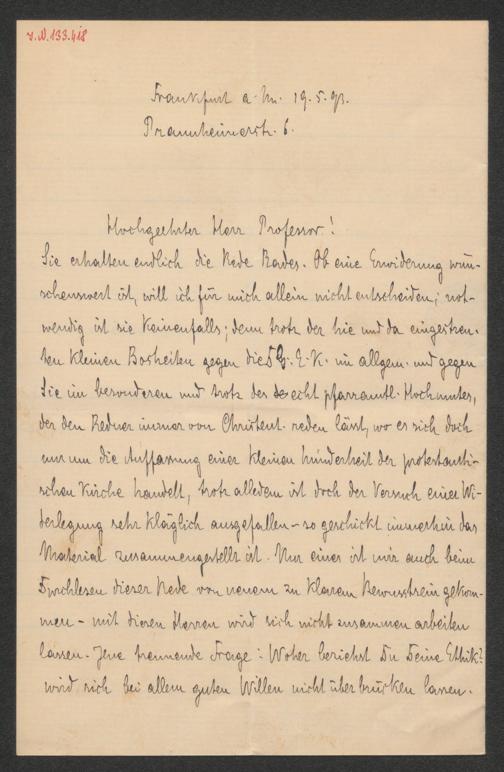 I.N. 133.418
Frankfurt a. M. 19.5.93.
Prannheimerstr. 6.
Hochgeehrter Herr Professor!
Sie erhalten endlich die Rede Rades. Ob eine Erwiderung wün-
schenswert ist, will ich für mich allein nicht entscheiden; not-
wendig ist sie keinenfalls; denn trotz der hie und da eingestreu-
ten kleinen Bosheiten gegen die D. G. E. K. im allgem. und gegen
Sie im besonderen und trotz des echt pfarramtl. Hochmutes,
der den Redner immer von Christent. reden lässt, wo es sich doch
nur um die Auffassung einer kleinen Minderheit der protestanti-
schen Kirche handelt, trotz alledem ist doch der Versuch einer Wi-
derlegung sehr kläglich ausgefallen – so geschickt immerhin das
Material zusammengestellt ist. Nur eines ist mir auch beim
Durchlesen dieser Rede von neuem zu klarem Bewusstsein gekom-
men – mit diesen Herren wird sich nicht zusammen arbeiten
lassen. Jene trennende Frage: Woher beziehst Du Deine Ethik?
wird sich bei allem guten Willen nicht überbrücken lassen.